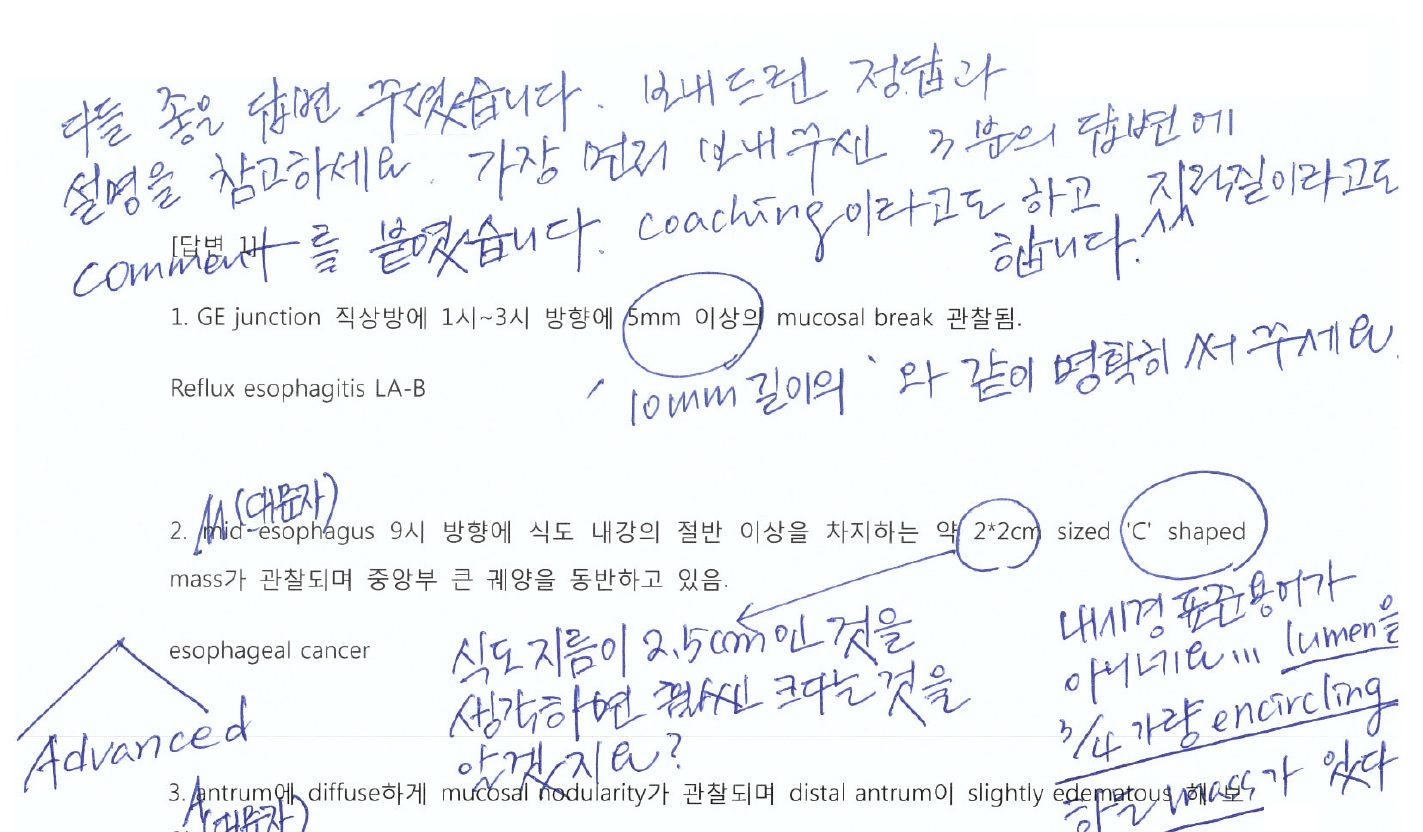 다들 좋은 답변 주셨습니다. 보내드린 정답과
설명을 참고하세요. 가장 먼저 보내주신 3분의 답변에
comment를 붙였습니다. coaching이라고도 하고 지적질이라고도
합니다.^^
[답변 1]
1. GE junction 직상방에 1시~3시 방향에 5mm 이상의 mucosal break 관찰됨.
'10mm 길이의'와 같이 명확히 써 주세요.
Reflux esophagitis LA-B
M(대문자)
2. mid-esophagus 9시 방향에 식도 내강의 절반 이상을 차지하는 약 2*2cm sized 'C' shaped
mass가 관찰되며 중앙부 큰 궤양을 동반하고 있음.
식도지름이 2.5cm인 것을
생각하면 훨씬 크다는 것을
알겠지요?
내시경 표준용어가
아니네요... lumen을
3/4 가량 encircling
하는 mass가 있다
esophageal cancer
Advanced
3. antrum에 diffuse하게 mucosal nodularity가 관찰되며 distal antrum이 slightly edematous 해 보
A(대문자)